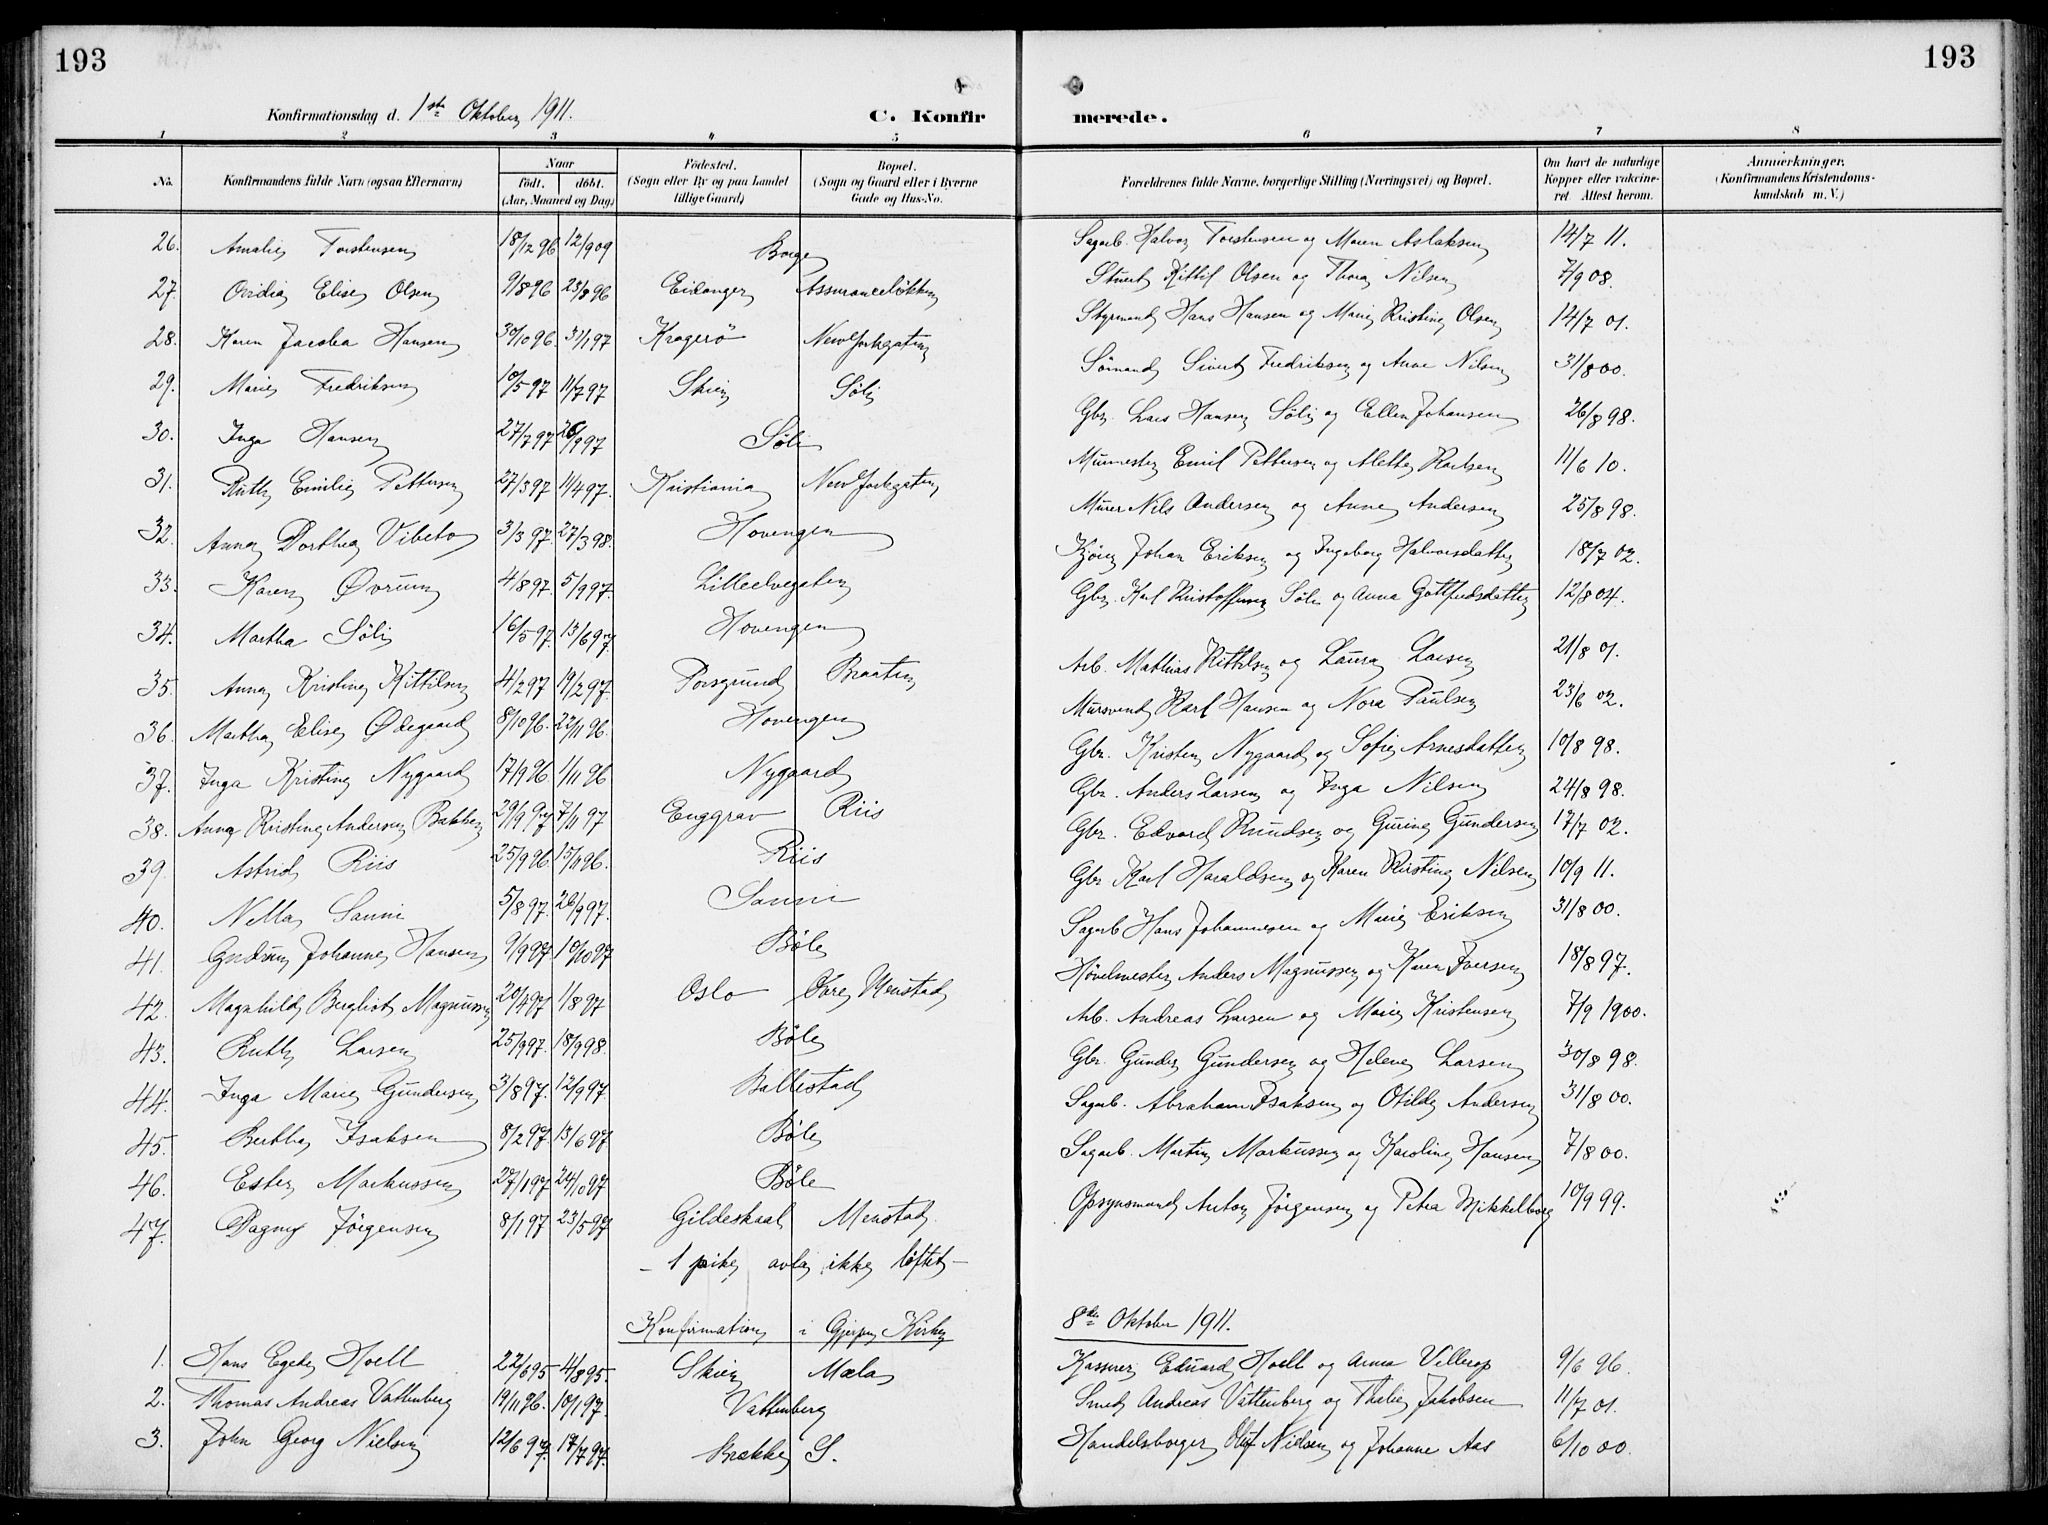 193
193
Konfirmationsdag d. 1ste Oktober 1911.
C. Konfir
merede.
1 2 3 4 5 6 7 8
No. Konfirmandens fulde Navn (ogsaa Efternavn) Naar født. døbt. (Aar, Maaned og Dag) Fødested. (Sogn eller By og paa Landet tillige Gaard) Bopæl. (Sogn og Gaard eller i Byerne Gade og Hus-No. Forældrenes fulde Navne, borgerlige Stilling (Næringsvei) og Bopæl. Om havt de naturlige Kopper eller vakcineret Attest herom. Anmærkninger. (Konfirmandens Kristendomskundskab m. V.)
26. Amalie Torstensen 18/12 96 12/9 09 Borge Sagarb. Halvor Torstensen og Maren Aslaksen 14/7 11.
27. Ovidia Elise Olsen 9/8 96 23/8 96 Eidanger Assuranceløkken Stuert Kittil Olsen og Thora Nilsen 7/9 08.
28. Karen Jacoba Hansen 30/10 96. 31/1 97 Kragerö New Yorkgaten Styrmand Hans Hansen og Marie Kristine Olsen 14/7 01.
29. Marie Fredriksen 10/5 97 11/7 97 Skien Søli Sömand Sivert Fredriksen og Anne Nilsen 31/8 00.
30. Inga Hansen 27/7 97 26/9 97 Söli Gbr. Lars Hansen Söli og Ellen Johansen 26/8 98.
31. Ruth Emilie Pettersen 27/3 97 11/4 97. Kristiania New Yorkgaten Murmester Emil Pettersen og Alette Karlsen 11/6 10.
32. Anna Dorthea Vibeto 3/3 97. 27/3 98. Hovengen Murer Nils Andersen og Anne Andersen 25/8 98.
33. Karen Øvrum 4/8 97. 5/9 97. Lilleelvegaten Kjörer Johan Eriksen og Ingeborg Halvorsdatter 18/7 02.
34. Martha Söli 16/5 97. 13/6 97. Hovengen Gbr. Karl Kristoffersen Söli og Anna Gottfredsdatter 12/8 04.
35. Anna Kristine Kittilsen 4/2 97 19/2 97. Porsgrund Braaten Arb. Mathias Kittilsen og Laura Larsen 21/8 01.
36. Martha Elise Ødegaard 8/10 96. 22/11 96. Hovengen Mursvend Karl Hansen og Nora Paulsen 23/6 02.
37. Inga Kristine Nygaard 17/9 96 1/11 96 Nygaard Gbr. Kristen Nygaard og Sofie Arnesdatter 10/8 98.
38. Anna Kristine Andersen Bakken 29/9 97 7/11 97 Enggrav Riis Gbr. Anders Larsen og Inga Nilsen 24/8 98.
39. Astrid Riis 25/9 96. 15/11 96. Riis Gbr. Edvard Knudsen og Gurine Gundersen 17/7 02.
40. Nella Sanni 5/8 97. 26/9 97. Sanni Gbr Karl Haraldsen og Karen Kristine Nilsen 10/9 11.
41. Gudrun Johanne Hansen 9/9 97. 10/10 97 Böle Sagarb Hans Johannesen og Marie Eriksen 31/8 00.
42. Magnhild Bergliot Magnussen 20/4 97 1/8 97 Oslo Övre Menstad Hövelmester Anders Magnussen og Karen Iversen 18/8 97.
43. Ruth Larsen 25/9 97. 18/9 98. Böle Arb. Andreas Larsen og Marie Kristensen 7/9 1900.
44. Inga Marie Gundersen 3/8 97. 12/9 97. Ballestad Gbr. Gunder Gundersen og Helene Larsen 30/8 98.
45. Bertha Isaksen 8/2 97. 13/6 97 Böle Sagarb. Abraham Isaksen og Otilde Andersen 31/8 00.
46. Ester Markussen 27/1 97 24/10 97 Böle Sagarb. Martin Markussen og Karoline Hansen 7/8 00.
47. Dagny Jörgensen 8/1 97 23/5 97 Gildeskaal Menstad. Opsynsmand Anton Jörgensen og Petra Mikkelborg 10/9 99.
– 1 pike avla ikke löftet –
Konfirmation i Gjerpen Kirke 8de Oktober 1911.
1. Hans Egede Hoell 22/6 95 4/8 95. Skien Mæla Kasserer Eduard Hoell og Anna Villerop 9/6 96.
2. Thomas Andreas Vattenberg 19/11 96. 10/1 97. Vattenberg Smed Andreas Vattenberg og Thalie Jakobsen 11/7 01.
3. John Georg Nielsen 12/6 97. 17/7 97. Brække S. Handelsborger Oluf Nielsen og Johanne Aas 6/10 00.